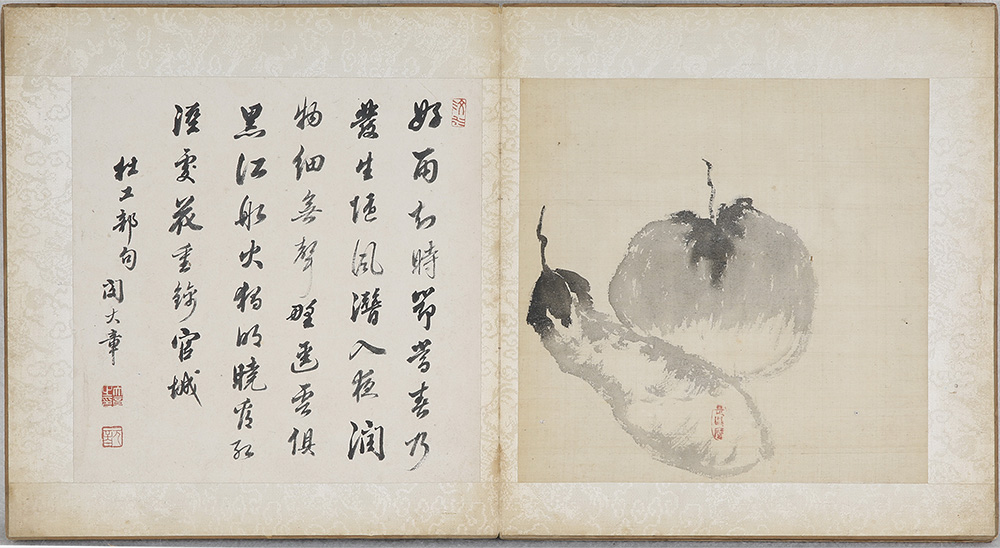 好雨知時節當春乃
發生隨風潛入夜潤
物細無聲野逕雲俱
黑江船火獨明曉看紅
溼處花重錦官城
杜工部句 閔大章